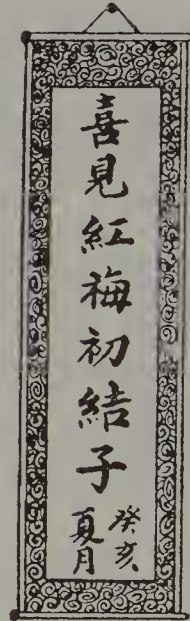 喜見紅梅初結子
癸亥
夏月